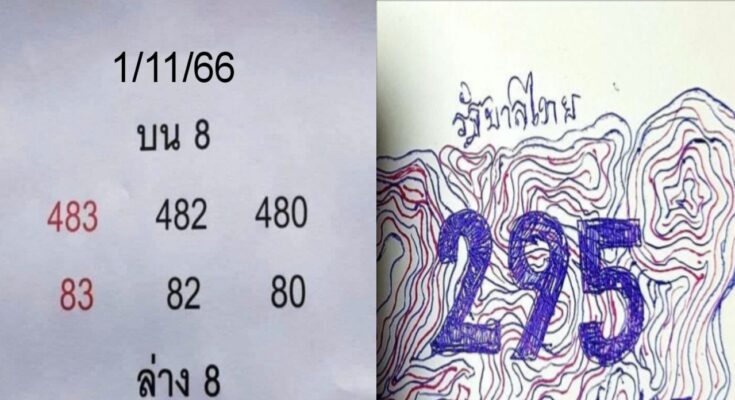 1/11/66
บน 8
483 482 480
83 82 80
ล่าง 8
รัฐบาลไทย
295